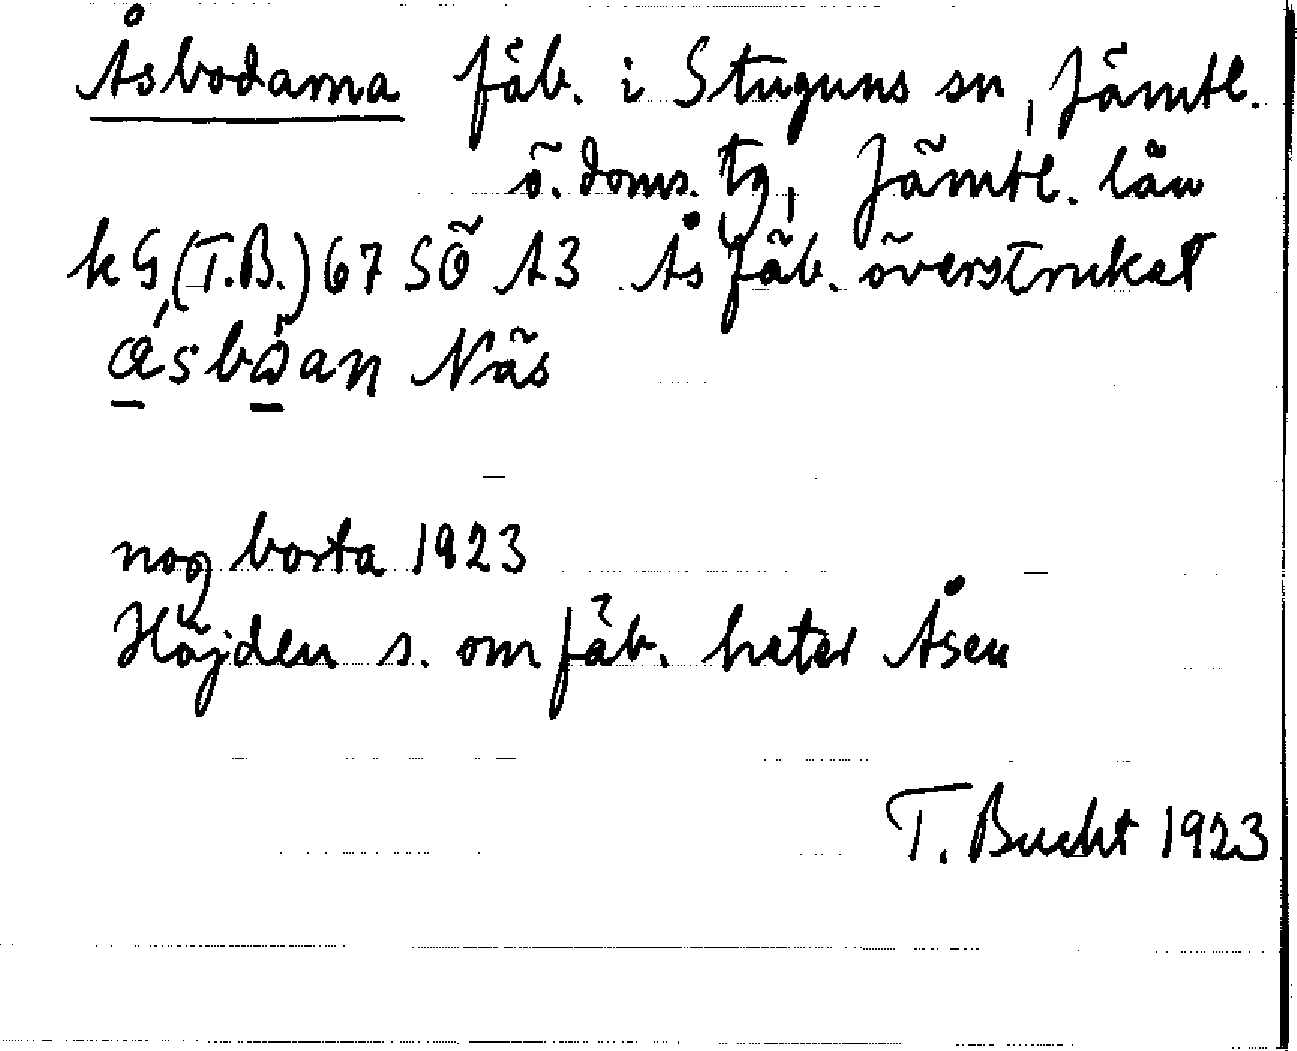 Åsbodarna fäb. i Stuguns sn, Jämtl.
ö. doms. tg, Jämtl. län
k G, (T.B.) 67 SÖ A3 Ås fäb. överstruket
åsbɷ̀an Näs
nog borta 1923
Höjden s. om fäb. heter Åsen
T. Bucht 1923